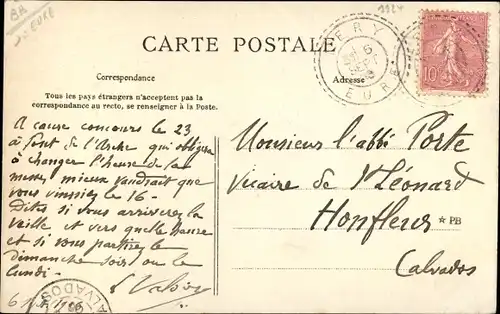 BB
S/EURE
1924
CARTE POSTALE
Correspondance
Adresse
Tous les pays étrangers n'acceptent pas la
correspondance au recto, se renseigner à la Poste.
ERY
6
SEPT
EURE
10
A cause concours le 23
à Pont de l'Arche qui obligera
à changer l'heure de la
messe, mieux vaudrait que
vous vinssiez le 16 -
Dites si vous arriverez la
veille et vers quelle heure
et si vous partirez le
Dimanche soir ou le
lundi -
6
CALVADOS
Monsieur l'abbé Porte
Vicaire de St Léonard
Honfleur
*PB
Calvados